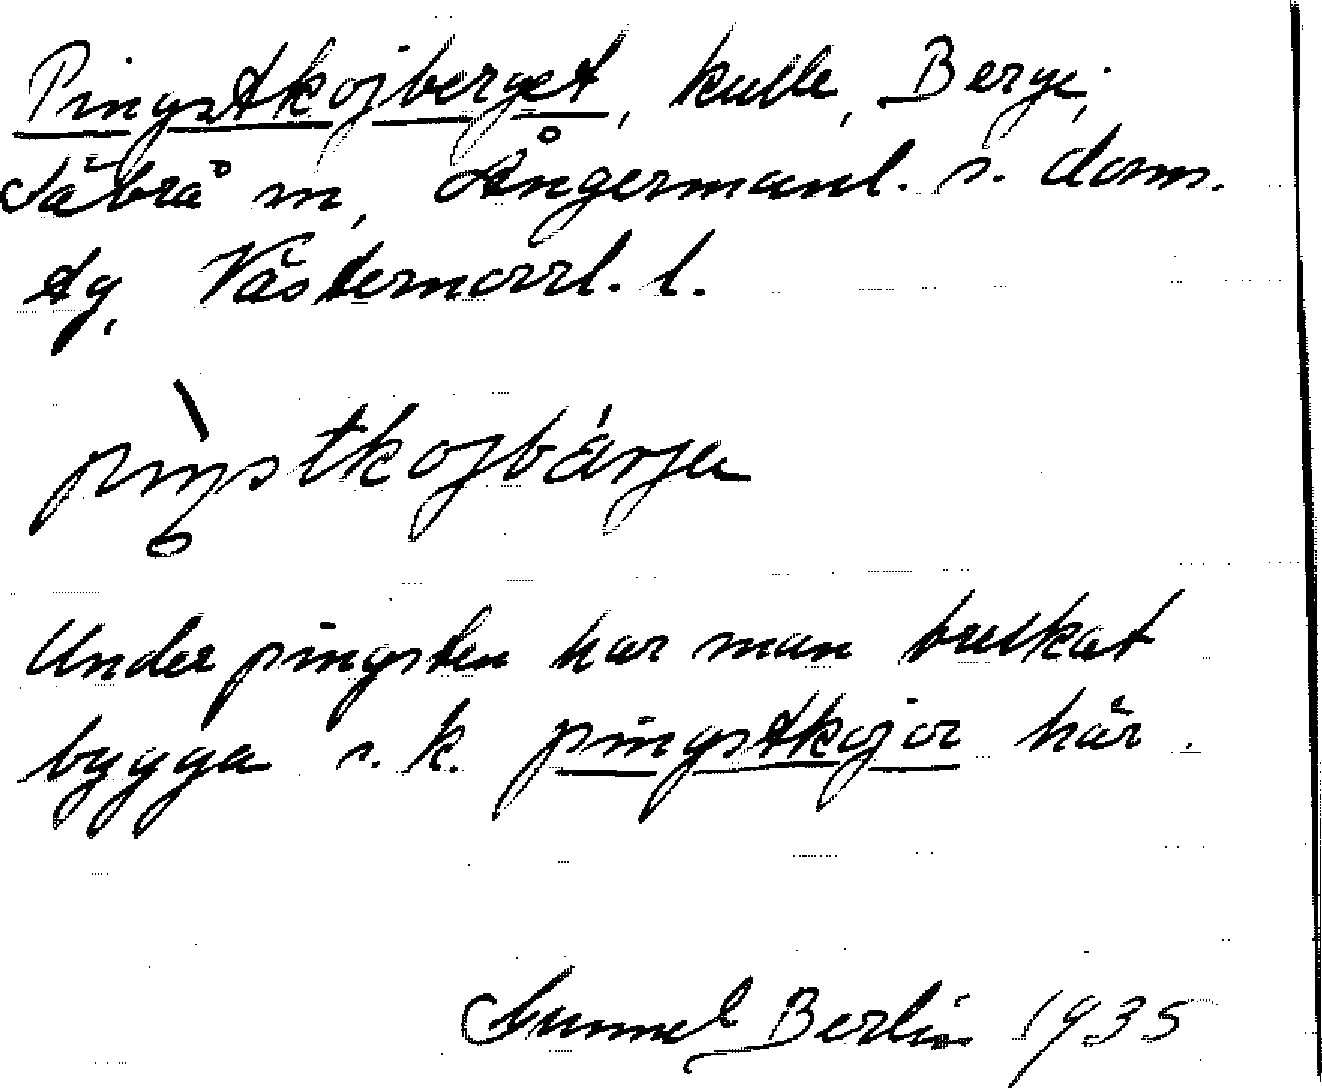 Pingstkojberget, kulle, Berge,
Säbrå sn, Ångermanl. s. doms.
tg, Västernorrl. l.
pı̀ŋstkojbárja
Under pingsten har man brukat
bygga s. k. pingstkojor här.
Gunnel Berlin 1935